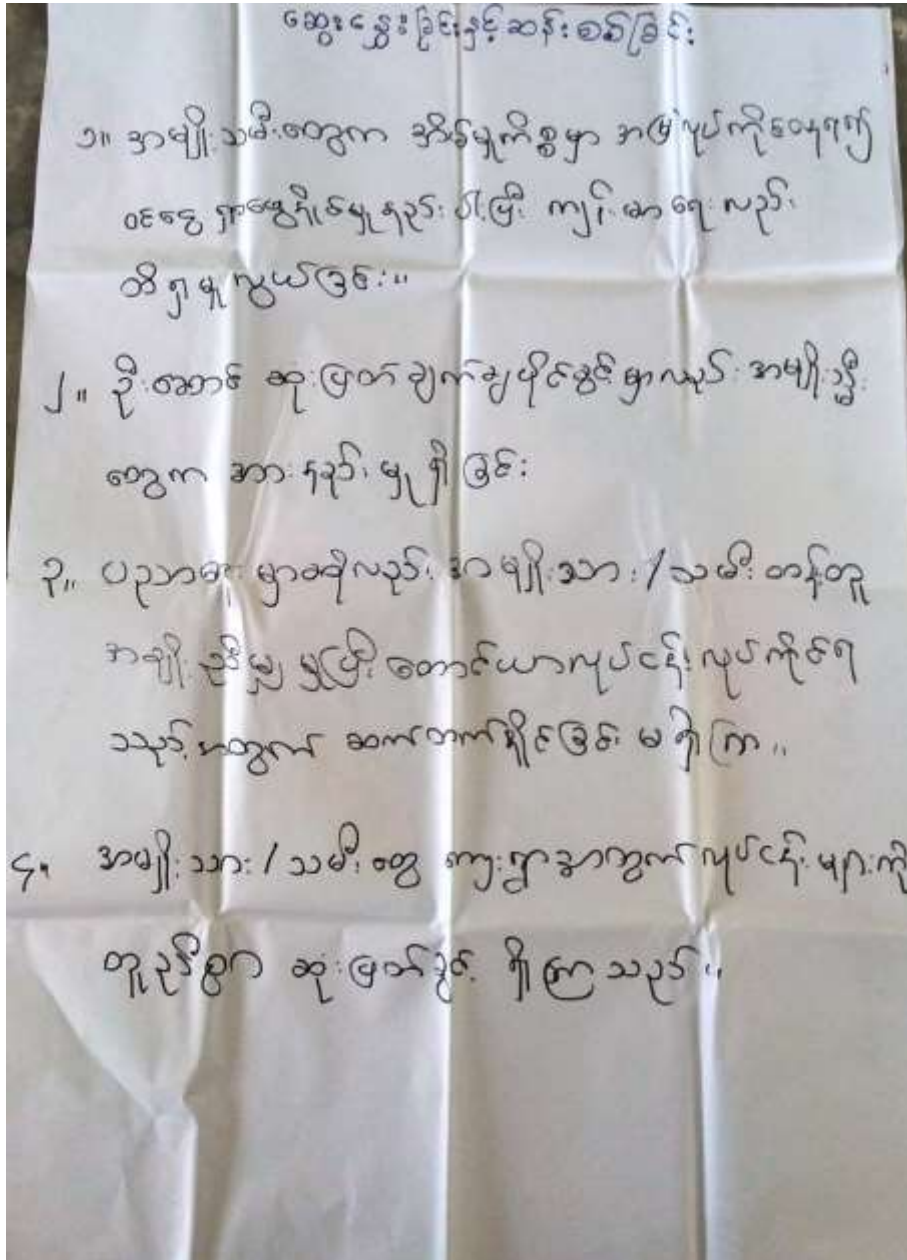 ဆွေးနွေးခြင်းနှင့်ဆန်းစစ်ခြင်း
၁။ အမျိုးသမီးတွေက အိမ်မှုကိစ္စမှာ အမြဲလုပ်ကိုင်နေရ၍
ဝင်ငွေ ရှာဖွေနိုင်မှုနည်းပါးပြီး ကျန်းမာရေးလည်း
ထိရှမှုလွယ်ခြင်း။
၂။ ဦးဆောင် ဆုံးဖြတ်ချက်ချပိုင်ခွင့် မှာလည်း အမျိုးသမီး
တွေက အားနည်းမှု ရှိခြင်း
၃။ ပညာရေး မှာဆိုလည်း အမျိုးသား/သမီး တန်တူ
အချိုးညီမျှ မှုရှိပြီး တောင်ယာလုပ်ငန်း လုပ်ကိုင်ရ
သည့်အတွက် ဆက်တက်နိုင်ခြင်း မရှိကြ။
၄။ အမျိုးသား/သမီးတွေ ကျေးရွာအတွက် လုပ်ငန်းများကို
တူညီစွာ ဆုံးဖြတ်ခွင့် ရှိကြသည်။